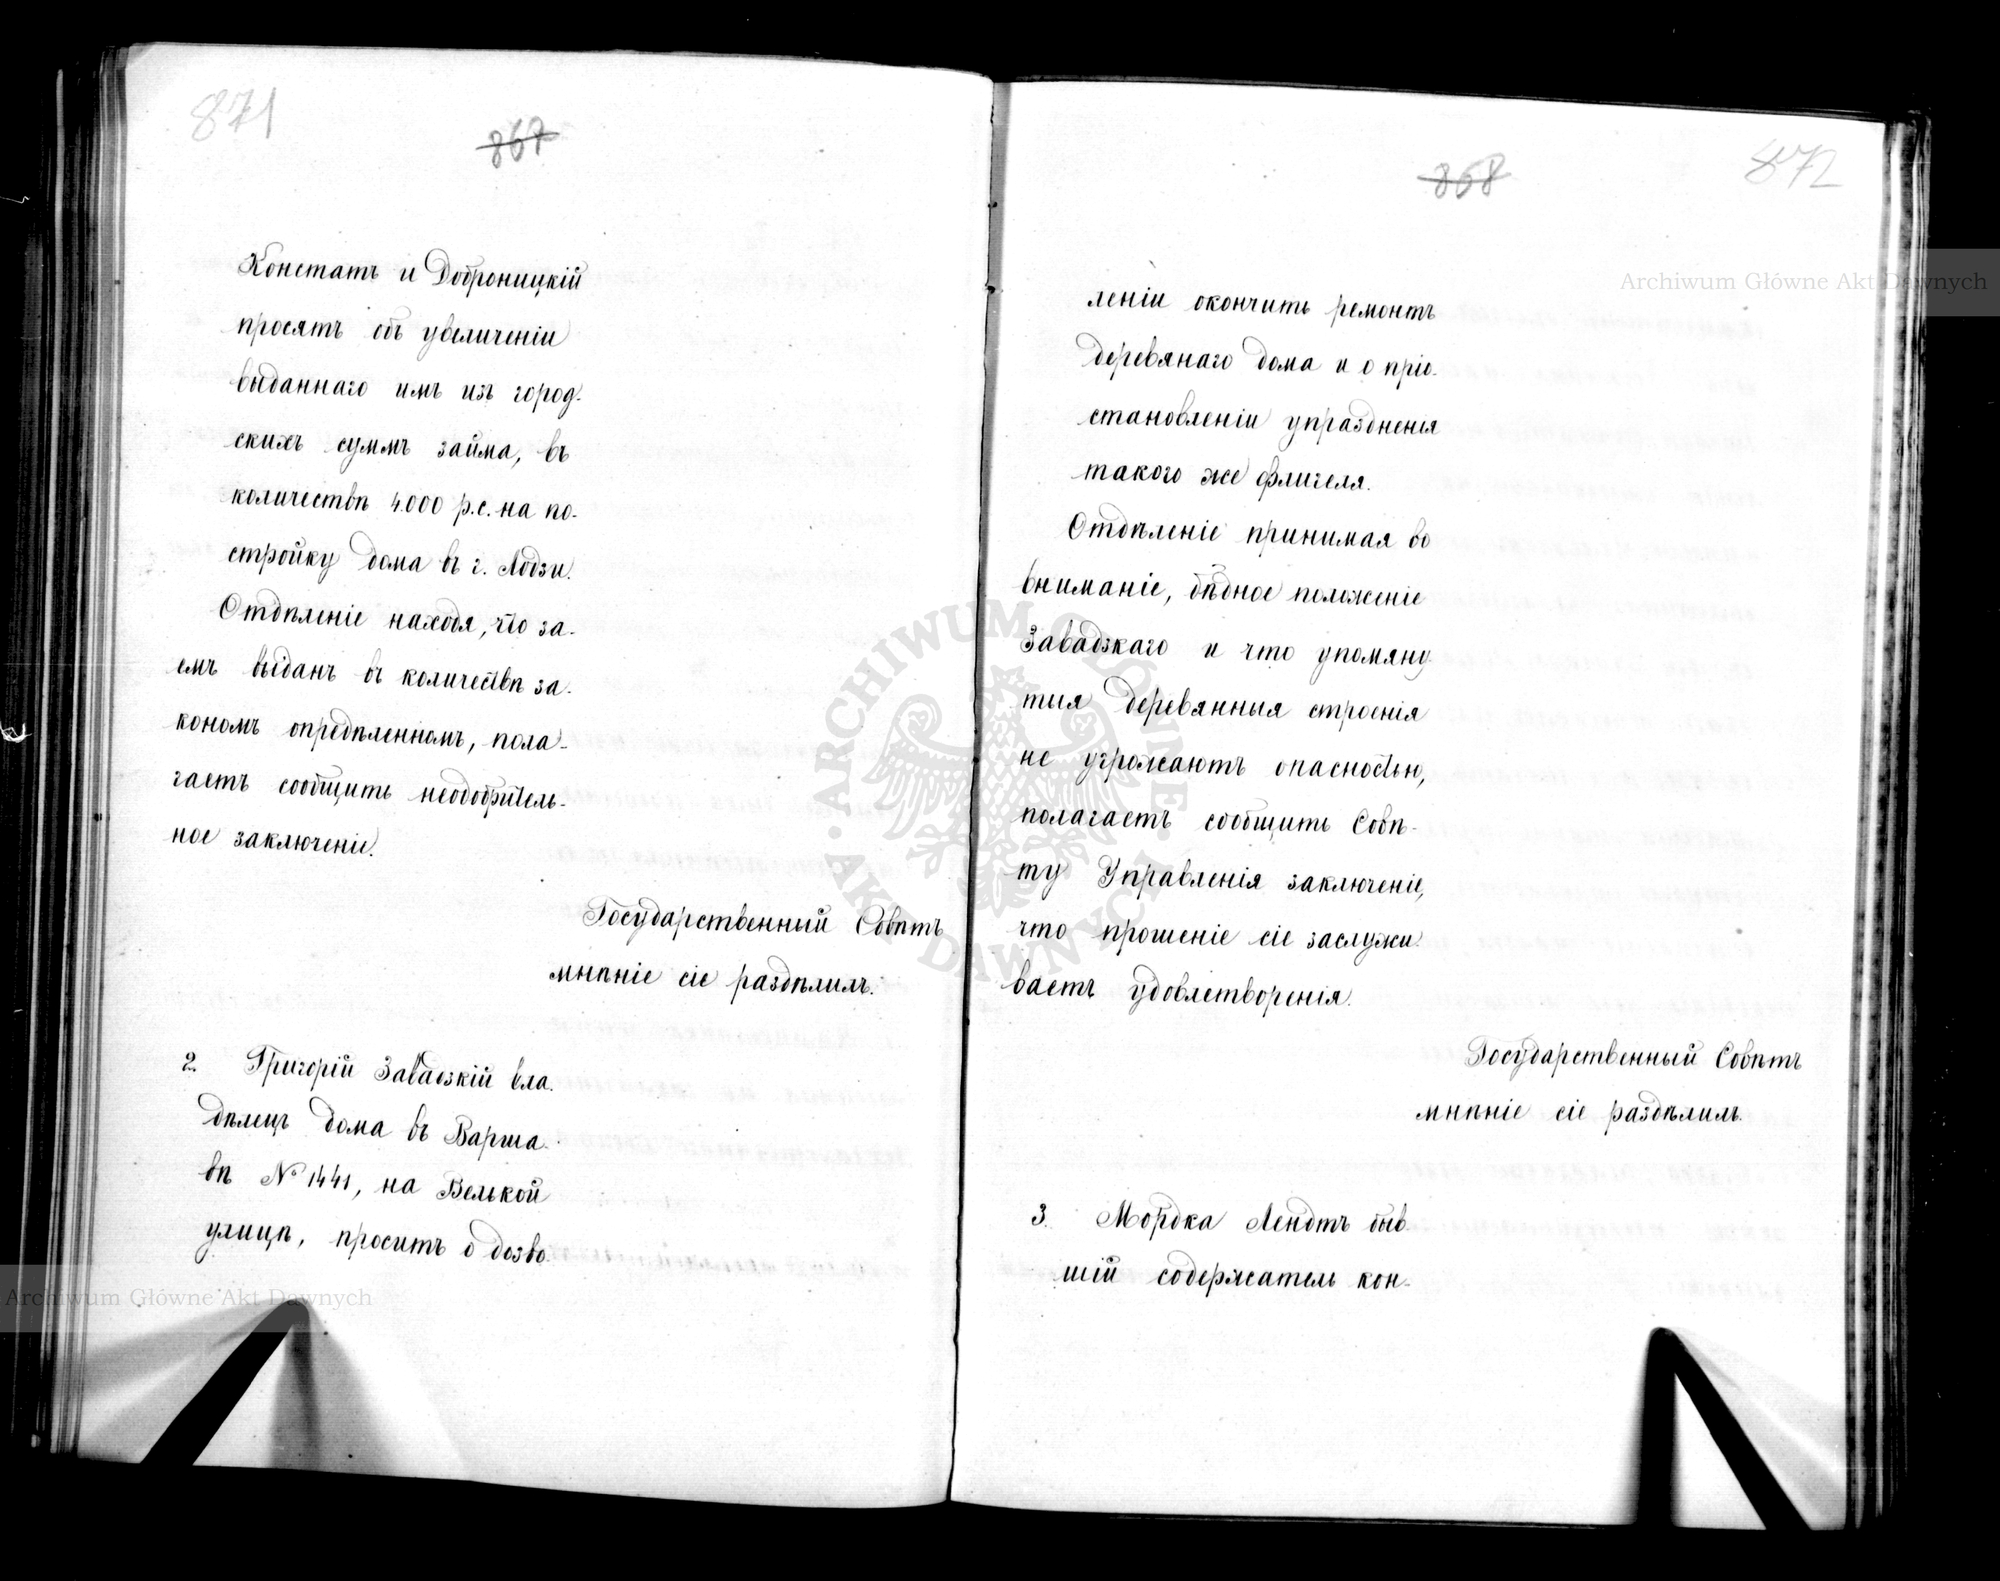 871
867
Констатъ и Доброницкій
просятъ объ увеличеніи
выданнаго имъ изъ город-
скихъ суммъ займа, въ
количествѣ 4.000 р.с. на по-
стройку дома въ г. Лодзи.
Отдѣленіе находя, что за-
емъ выданъ въ количествѣ за-
кономъ опредѣленномъ, пола-
гаетъ сообщить неодобритель-
ное заключеніе.
Государственный Совѣтъ
мнѣніе сіе раздѣлилъ.
2. Григорій Завадзкій вла-
дѣлецъ дома въ Варша-
вѣ № 1441, на Велькой
улицѣ, проситъ о дозво-
868
872
леніи окончить ремонтъ
деревянаго дома и о пріо-
становленіи упраздненія
такого же флигеля.
Отдѣленіе принимая во
вниманіе, бѣдное положеніе
Завадзкаго и что упомяну-
тыя деревянныя строенія
не угрожаютъ опасностью,
полагаетъ сообщить Совѣ-
ту Управленія заключеніе,
что прошеніе сіе заслужи-
ваетъ удовлетворенія.
Государственный Совѣтъ
мнѣніе сіе раздѣлилъ.
3. Мордка Лендтъ быв-
шій содержатель кон-
Archiwum Główne Akt Dawnych
Archiwum Główne Akt Dawnych
ARCHIWUM GŁÓWNE AKT DAWNYCH